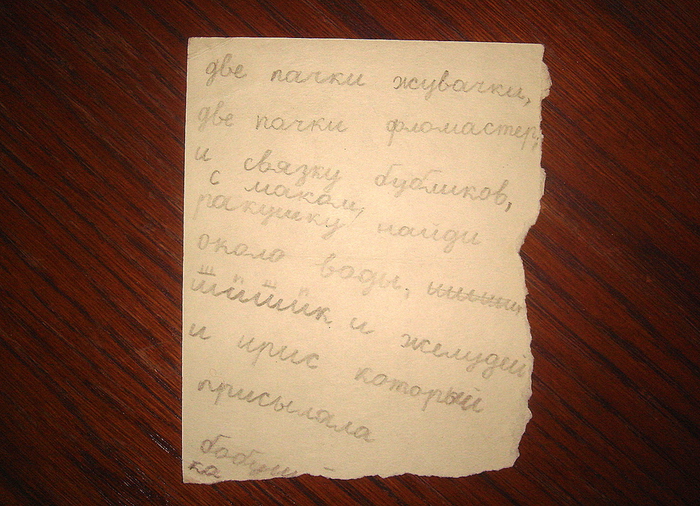 две пачки жувачки,
две пачки фломастер,
и связку бубликов,
с маком,
ракушку найди
около воды,
и желудей
и ирис который
присылала
бабуш-
ка